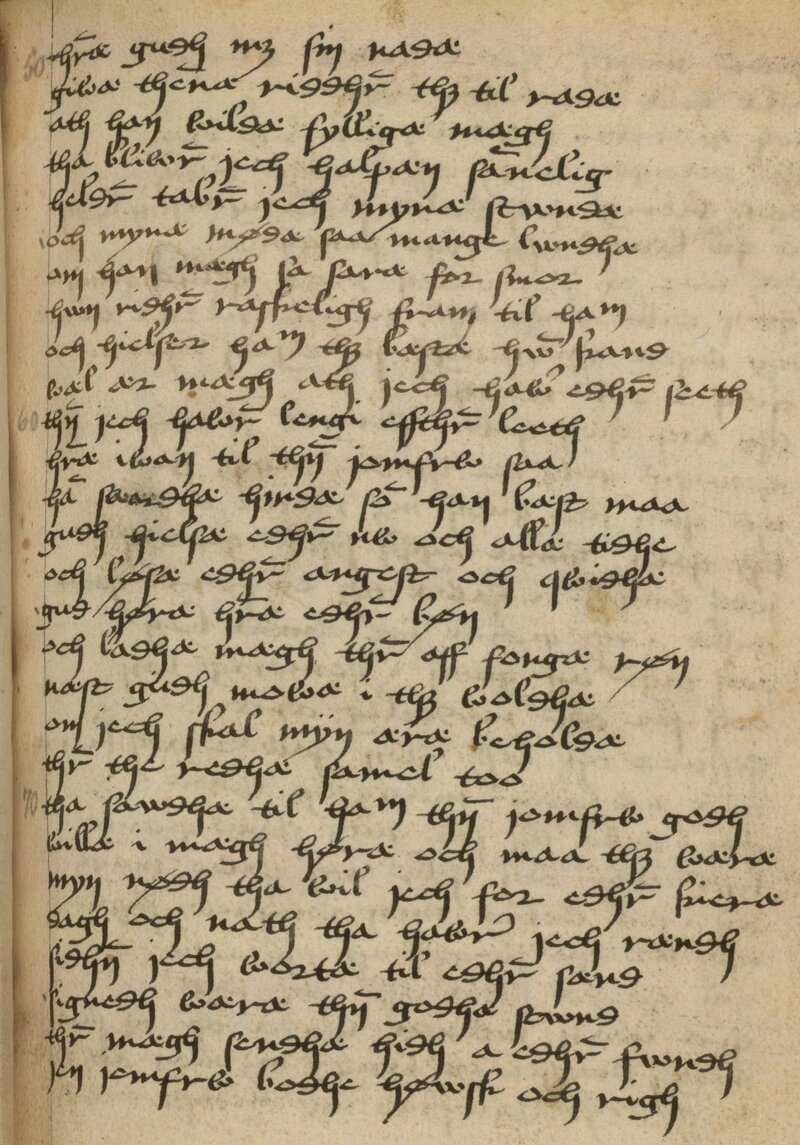 hr̄æ gudh mꝫ sin nadæ
giwæ thēnæ riddhr̄ thꝫ til radæ
ath han wildæ fylligæ mægh
tha bliwr̄ jech halpæn sānelig
heldr̄ tabr̄ jech mynæ stwndæ
och mynæ mødæ saa mange lwndhæ
om han mægh sa saræ for smor
hwn ridhr̄ raskeligh fram til ham
och hielser ham thꝫ bæstæ hw̄ kand
wæl ær mægh ath jech haw̄ edhr̄ seeth
60 thn̄ jech hawr̄ lengi effthr̄ leeth
hr̄æ iwan til thn̄ jomfrw saa
hā swardhæ hindæ sō han bæst maa
gudh hielsæ edhr̄ nw och allæ tidhe
och løsæ edhr̄ angest och qwidhæ
gud høræ hr̄æ edhr̄ bøn
och ladhæ mægh thr̄ aff fongæ røn
næst gudh mowæ i thꝫ woldhæ
om jech skal myn æræ beholdæ
thr̄ the redhæ samel too
70 tha sawdhæ til ham thn̄ jomfrw godh
willæ i mægh høræ och maa thꝫ wæræ
myn nødh tha wil jech for edhr̄ kieræ
dagh och nath tha hawr̄ jech rændh
sidhn̄ jech wortæ til edhr̄ sænd
signedh wæræ thn̄ godhæ stwnd
thr̄ mægh sendhæ hidh a edhr̄ fwndh
jen jomfrw bodhe høwsk och righ